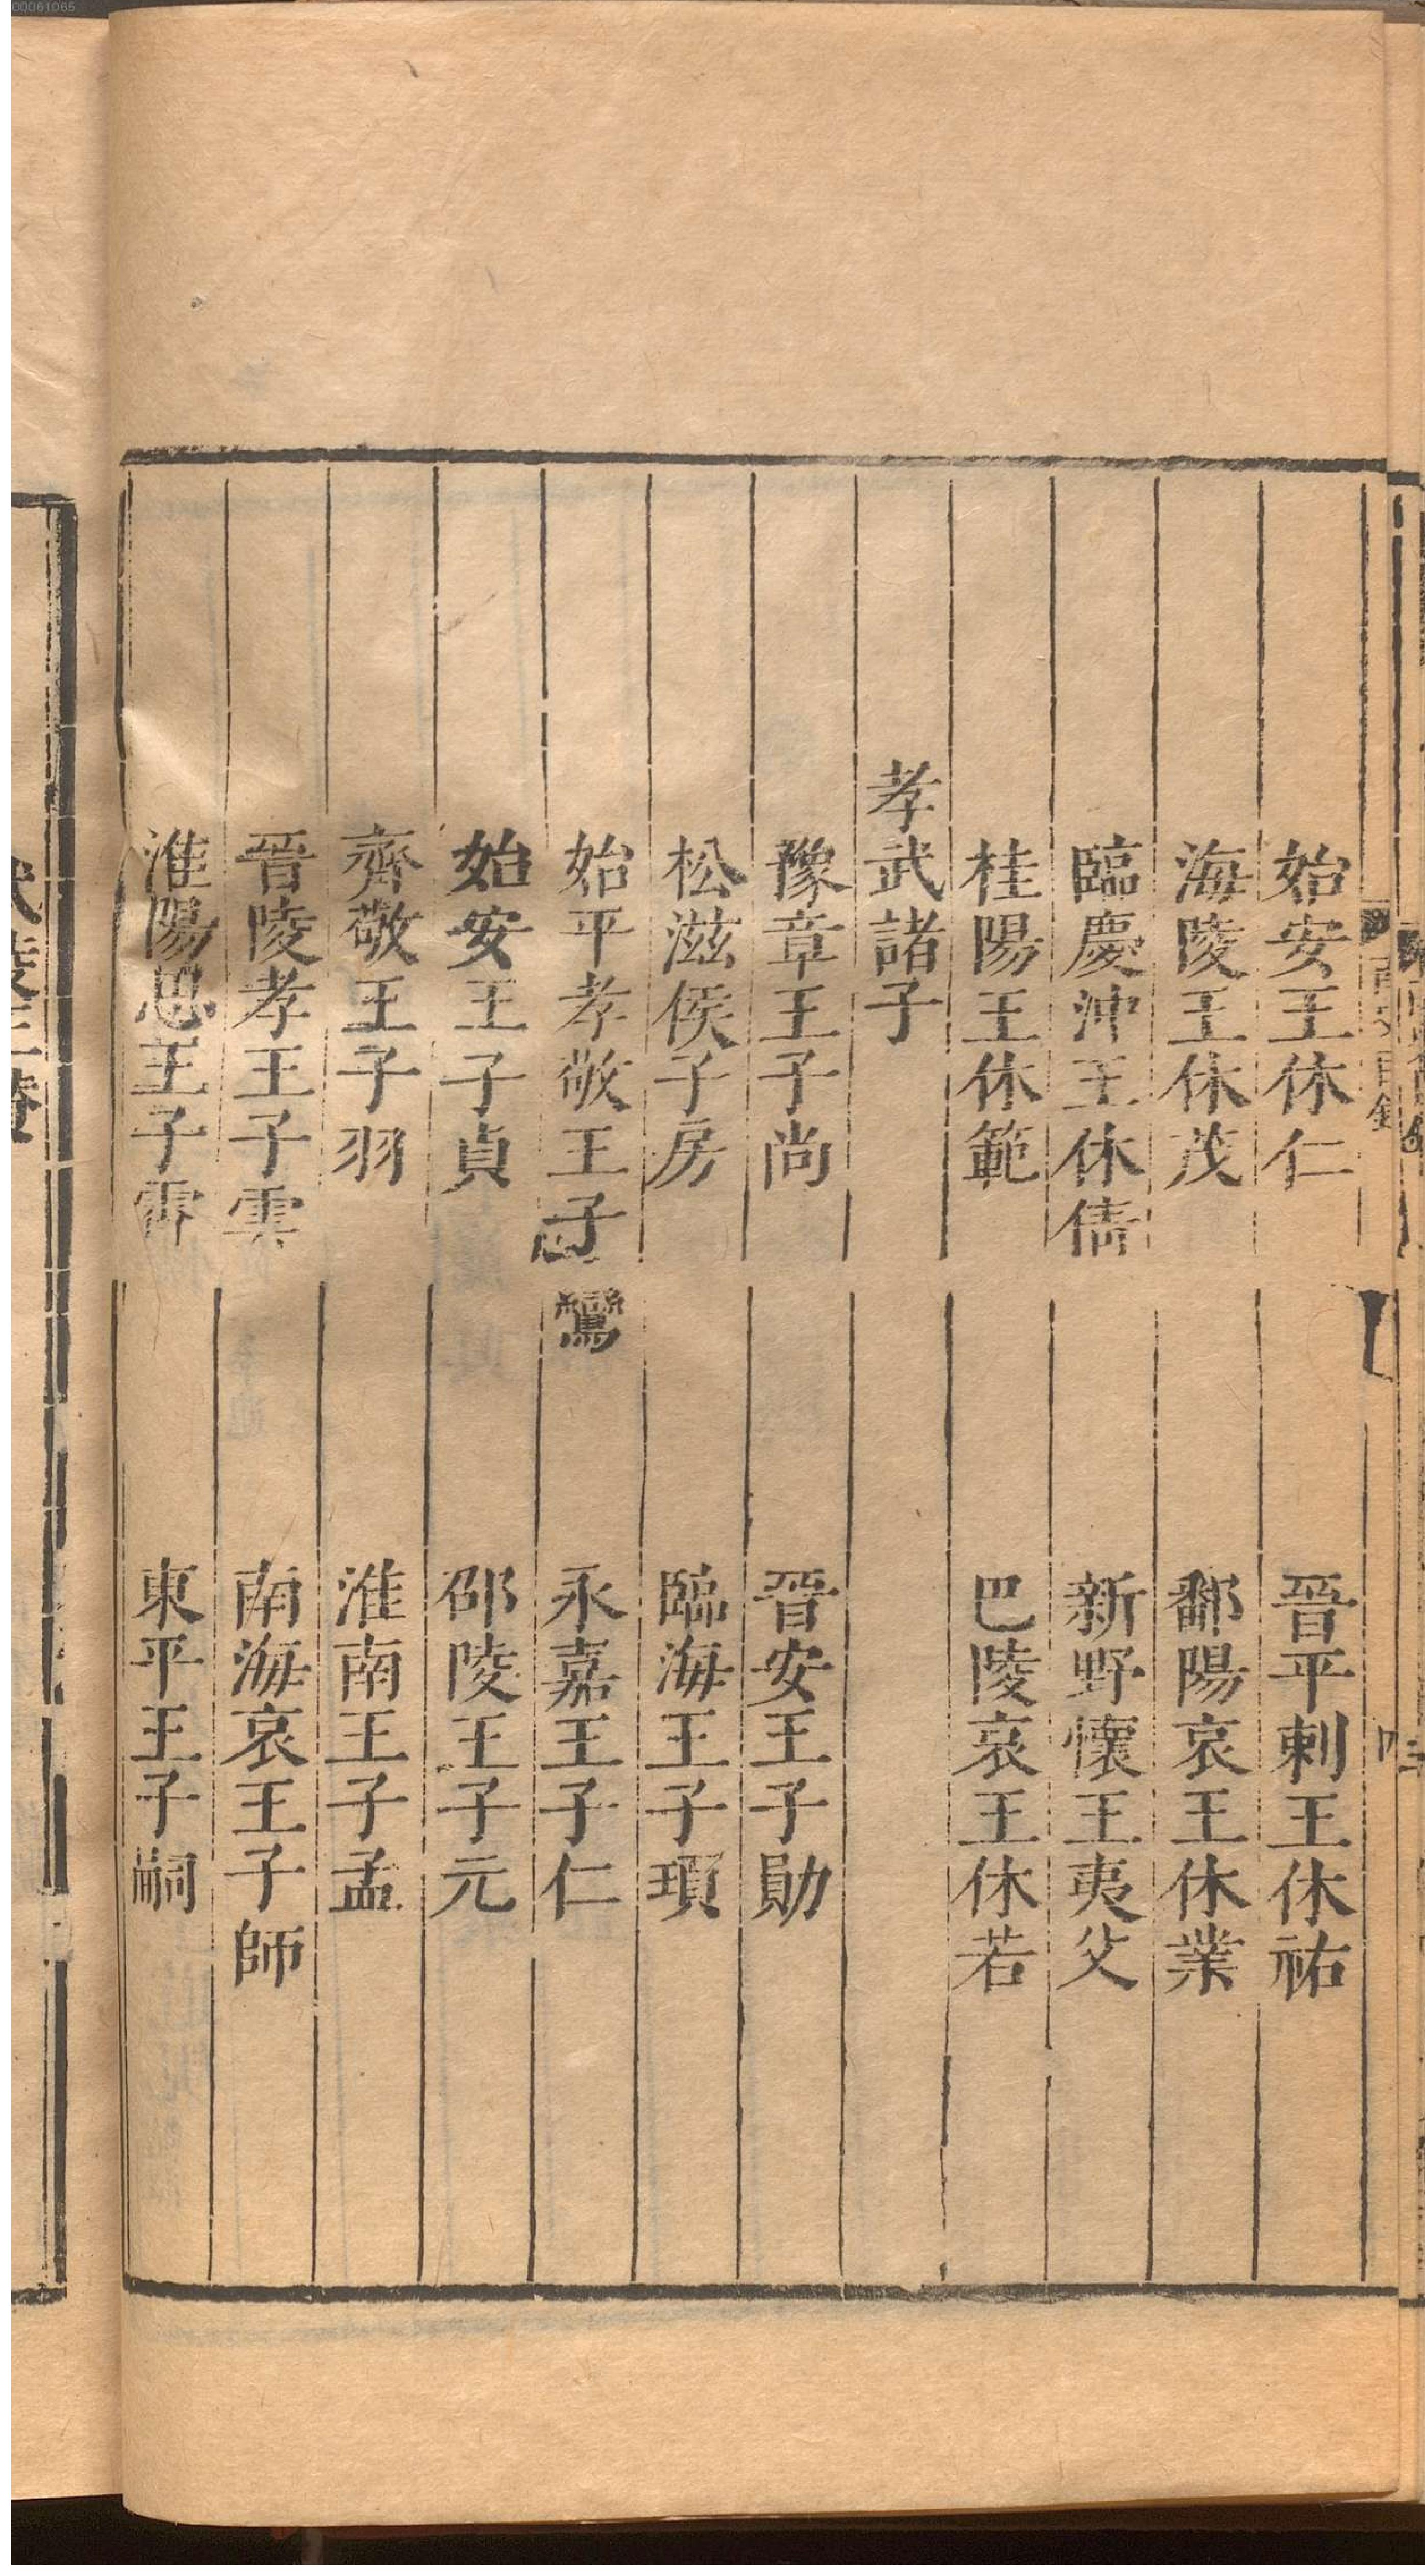 始安王休仁　晉平剌王休祐
海陵王休茂　鄱陽哀王休業
臨慶沖王休倩　新野懷王夷父
桂陽王休範　巴陵哀王休若
孝武諸子
豫章王子尚　晉安王子勛
松滋侯子房　臨海王子頊
始平孝敬王子鸞　永嘉王子仁
始安王子貞　邵陵王子元
齊敬王子羽　淮南王子孟
晉陵孝王子雲　南海哀王子師
淮陽思王子霄　東平王子嗣
00061065